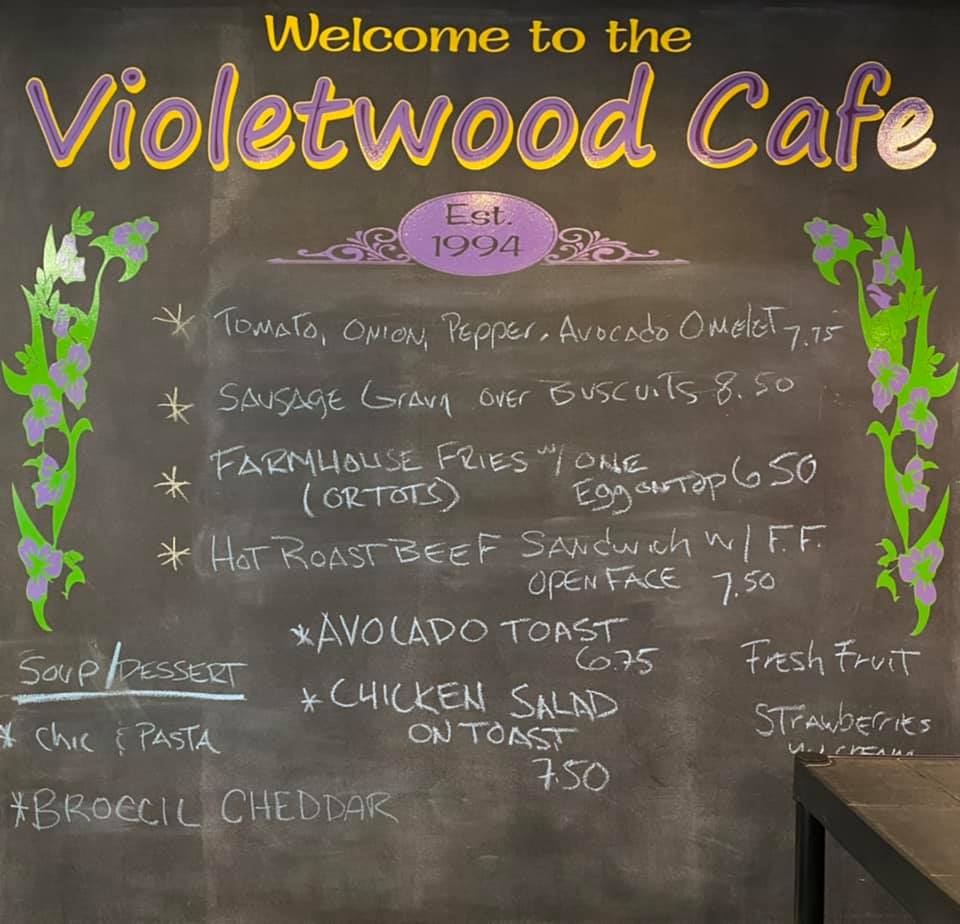 Welcome to the
Violetwood Cafe
Est.
1994
* Tomato, Onion, Pepper, Avocado Omelet 7.75
* Sausage Gravy over Buscuits 8.50
* Farmhouse Fries w/ one
(or Tots) Egg on top 6 50
* Hot Roast Beef Sandwich w/ F.F.
Open Face 7.50
* Avocado Toast
6.75
* Chicken Salad
on Toast
7.50
Soup/Dessert
* Chic & Pasta
* Broccil Cheddar
Fresh Fruit
Strawberries